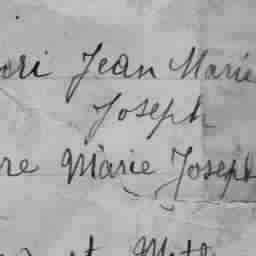 Jean Marie
Joseph
re Marie Joseph
et